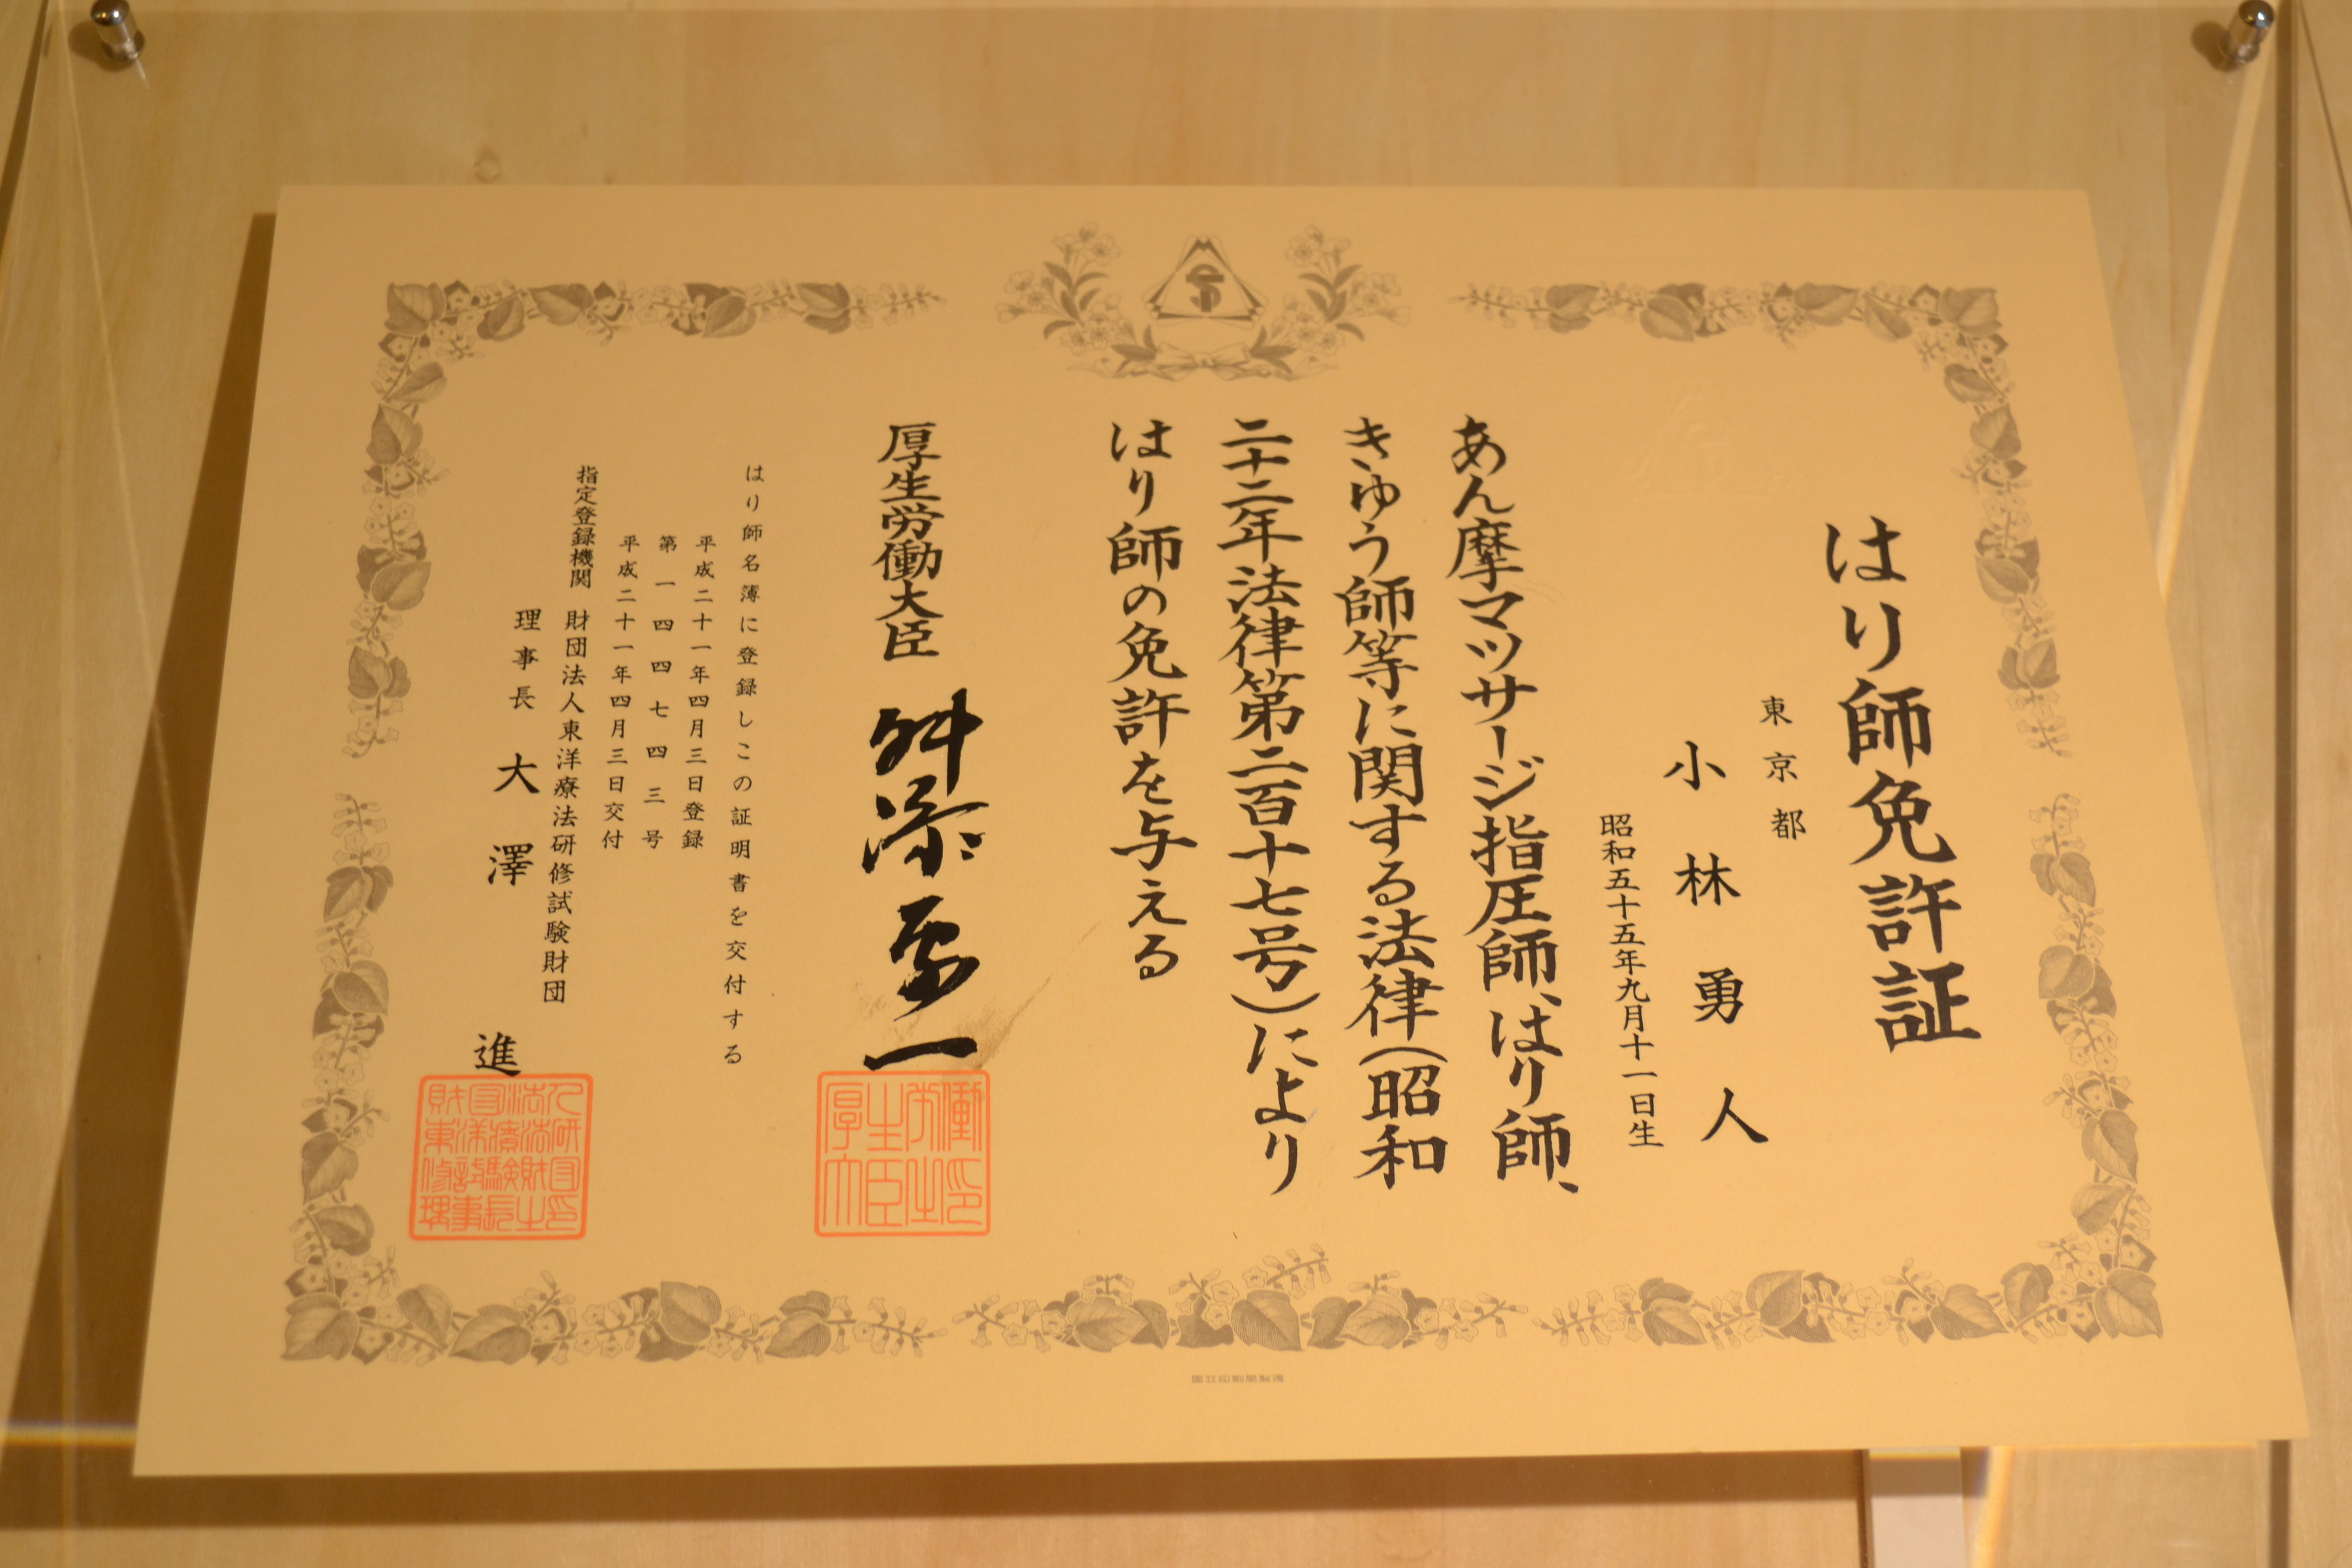 はり師免許証
東京都
小林勇人
昭和五十五年九月十一日生
あん摩マツサージ指圧師、はり師、
きゆう師等に関する法律(昭和
二十二年法律第二百十七号)により
はり師の免許を与える
厚生労働大臣 舛添要一
はり師名簿に登録しこの証明書を交付する
平成二十一年四月三日登録
第一四四七四三号
平成二十一年四月三日交付
指定登録機関 財団法人東洋療法研修試験財団
理事長 大澤 進
国立印刷局製造